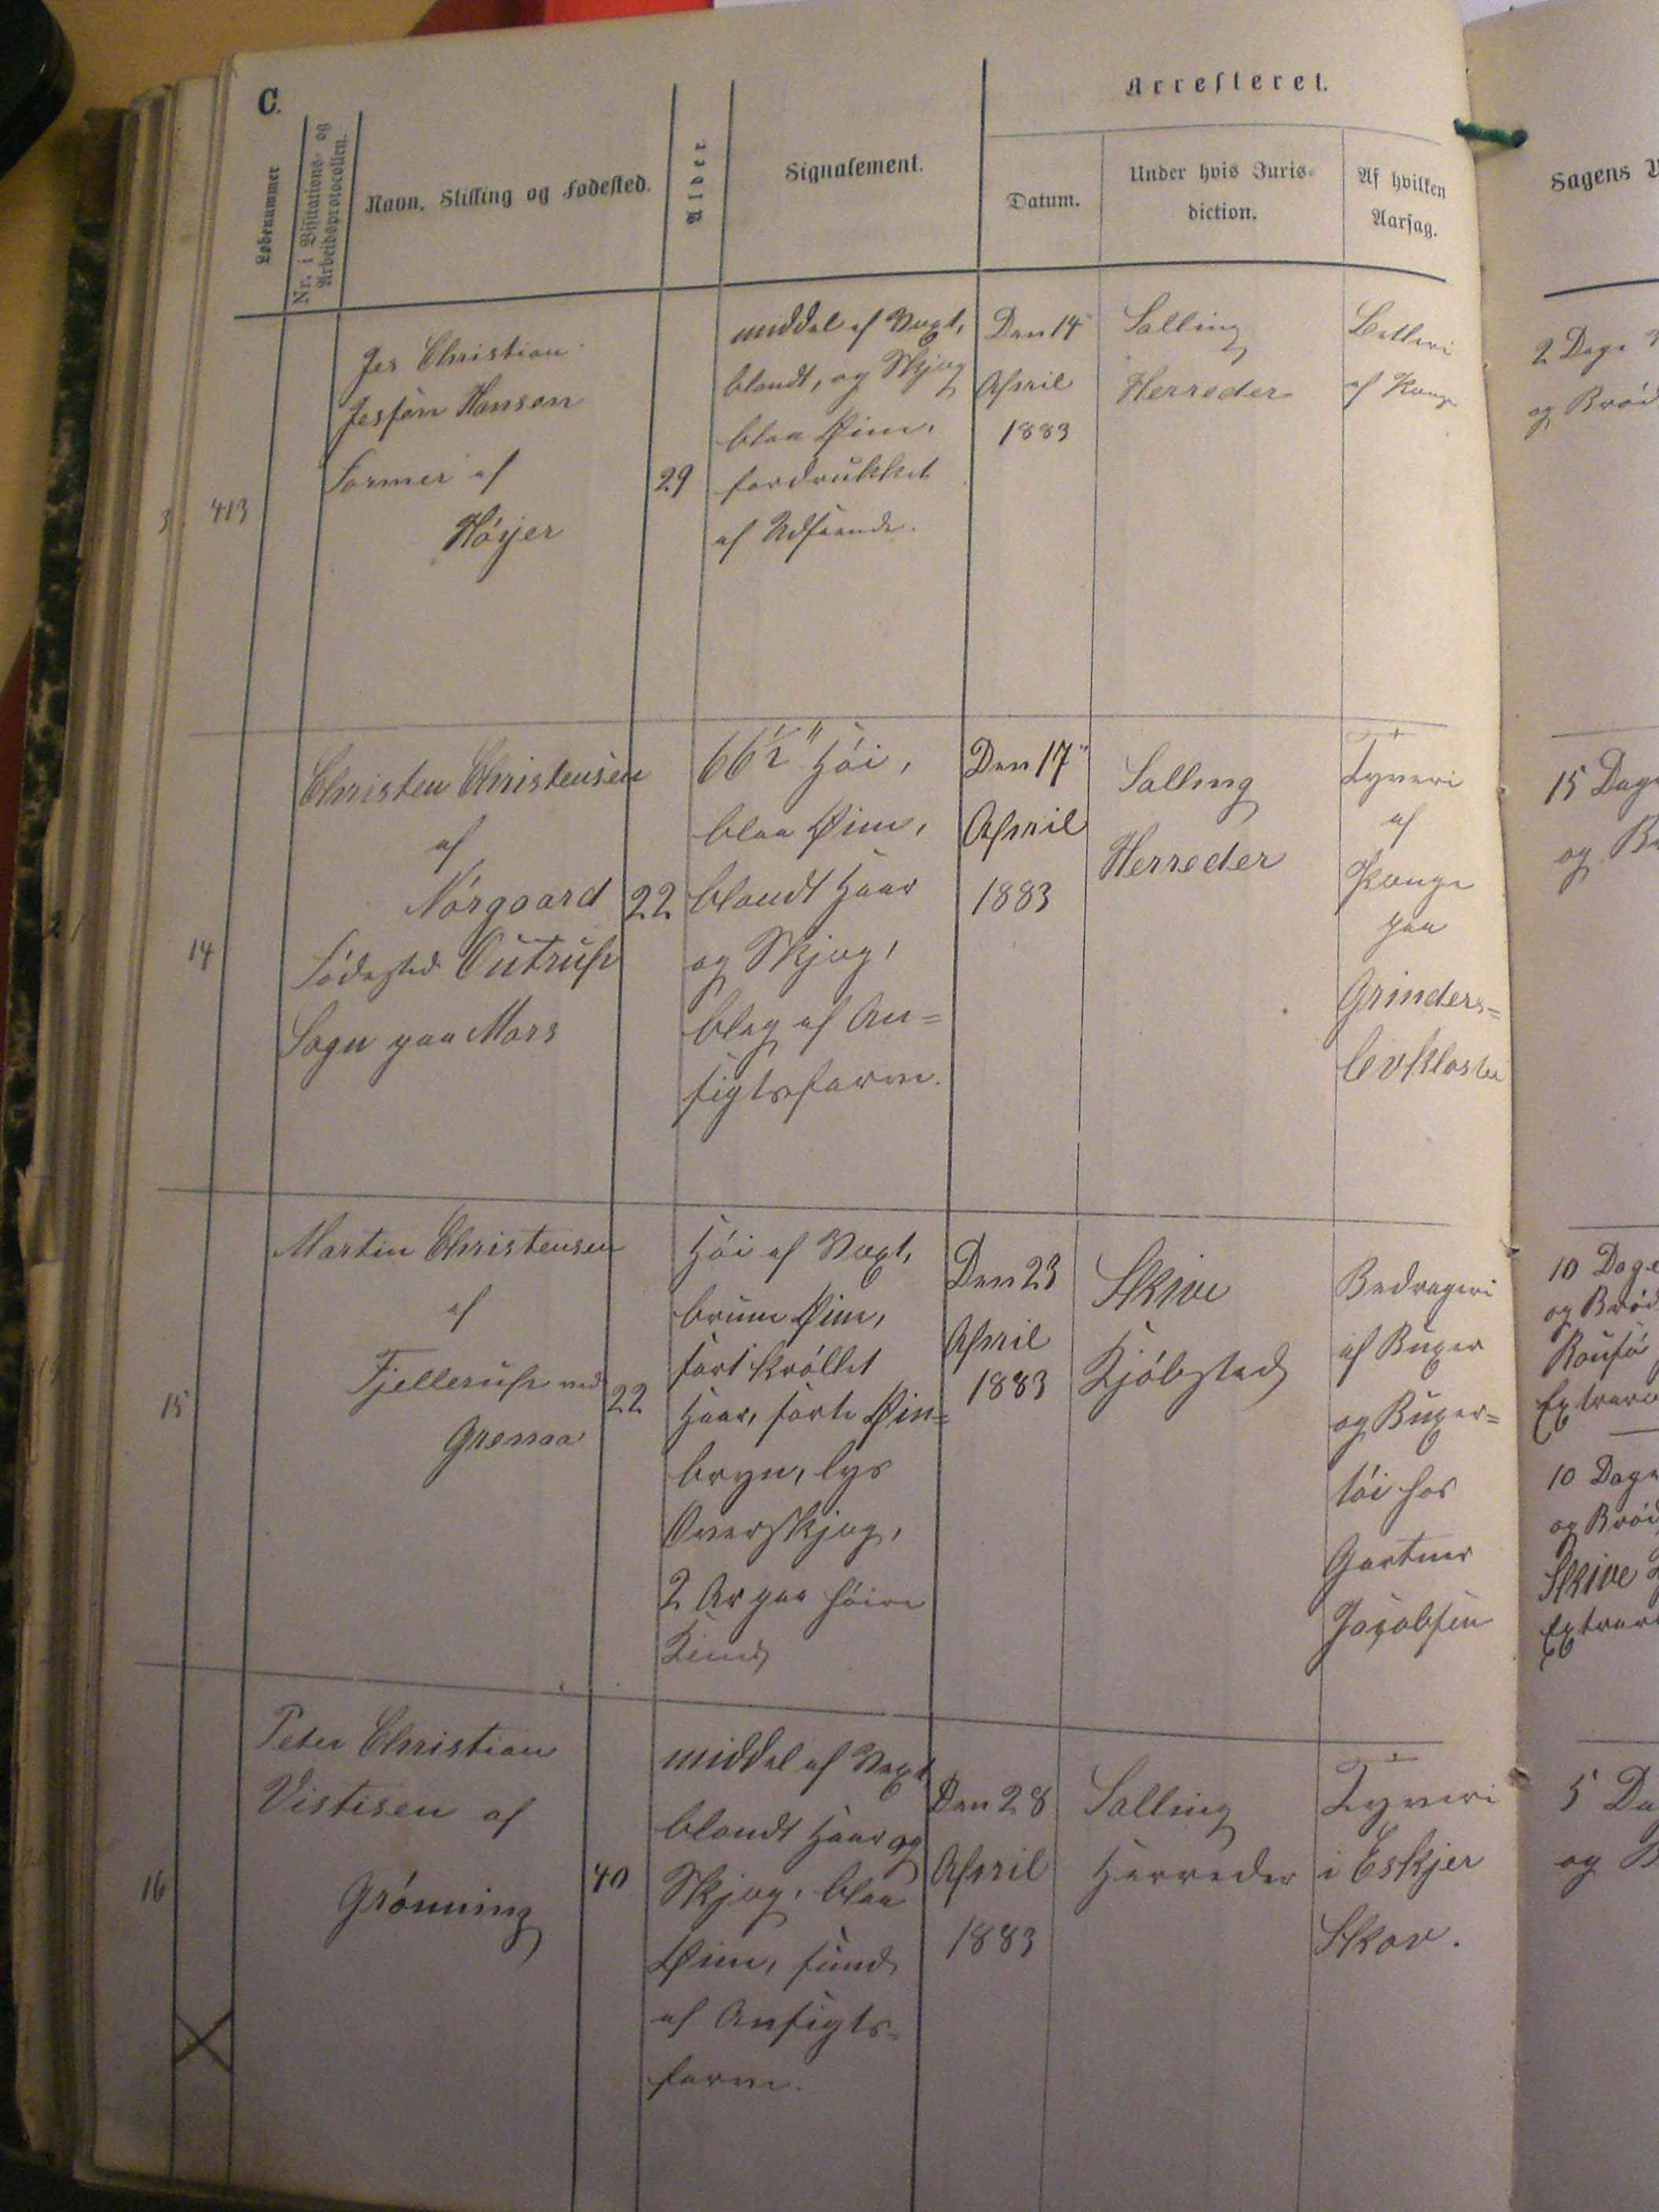 C.
Løbenummer
Nr. i Visitations- og
Arbeidsprotocollen.
Navn, Stilling og Fødested.
Alder.
Signalement.
Arresteret.
Datum.
Under hvis Juris-
diction.
Af hvilken
Aarsag.
Sagens
413
Jes Christian
Hansen
Former af
Höyer
29
middel af Vext,
blondt, og Skjæg
blaa Øine,
fordrukket
af Udseende.
Den 14"
April
1883
Salling
Herreder
Betleri
af Penge
2 Dage
og Bröd
14
Christen Christensen
af
Nörgaard
Födested Outrup
Sogn paa Mors
22
66 1/2" höi,
blaa Øine,
blondt Haar
og Skjæg,
bleg af An=
sigtsfarve.
Den 17"
April
1883
Salling
Herreder
Tyveri
af
Penge
paa
Grinders=
levkloster
15 Dage
og
15
Martin Christensen
af
Fjellerup ved
Grenaa
22
Höi af Vext,
brune Øine,
sort kröllet
Haar, sorte Øin=
bryn, lys
Overskjæg,
2 Ar paa höire
Kind
Den 23
April
1883
Skive
Kjöbsted
Bedrageri
af Buxer
og Buxer=
töi hos
Gartner
Jacobsen
10 Dage
og Bröd
10 Dage
og Bröd
Skive
16
Peter Christian
Vistisen af
Grönning
40
middel af Vext
blondt Haar og
Skjæg, blaa
Øine, sund
af Ansigts-
farve.
Den 28
April
1883
Salling
Herreder
Tyveri
i Eskjer
Skov.
5 Da
og